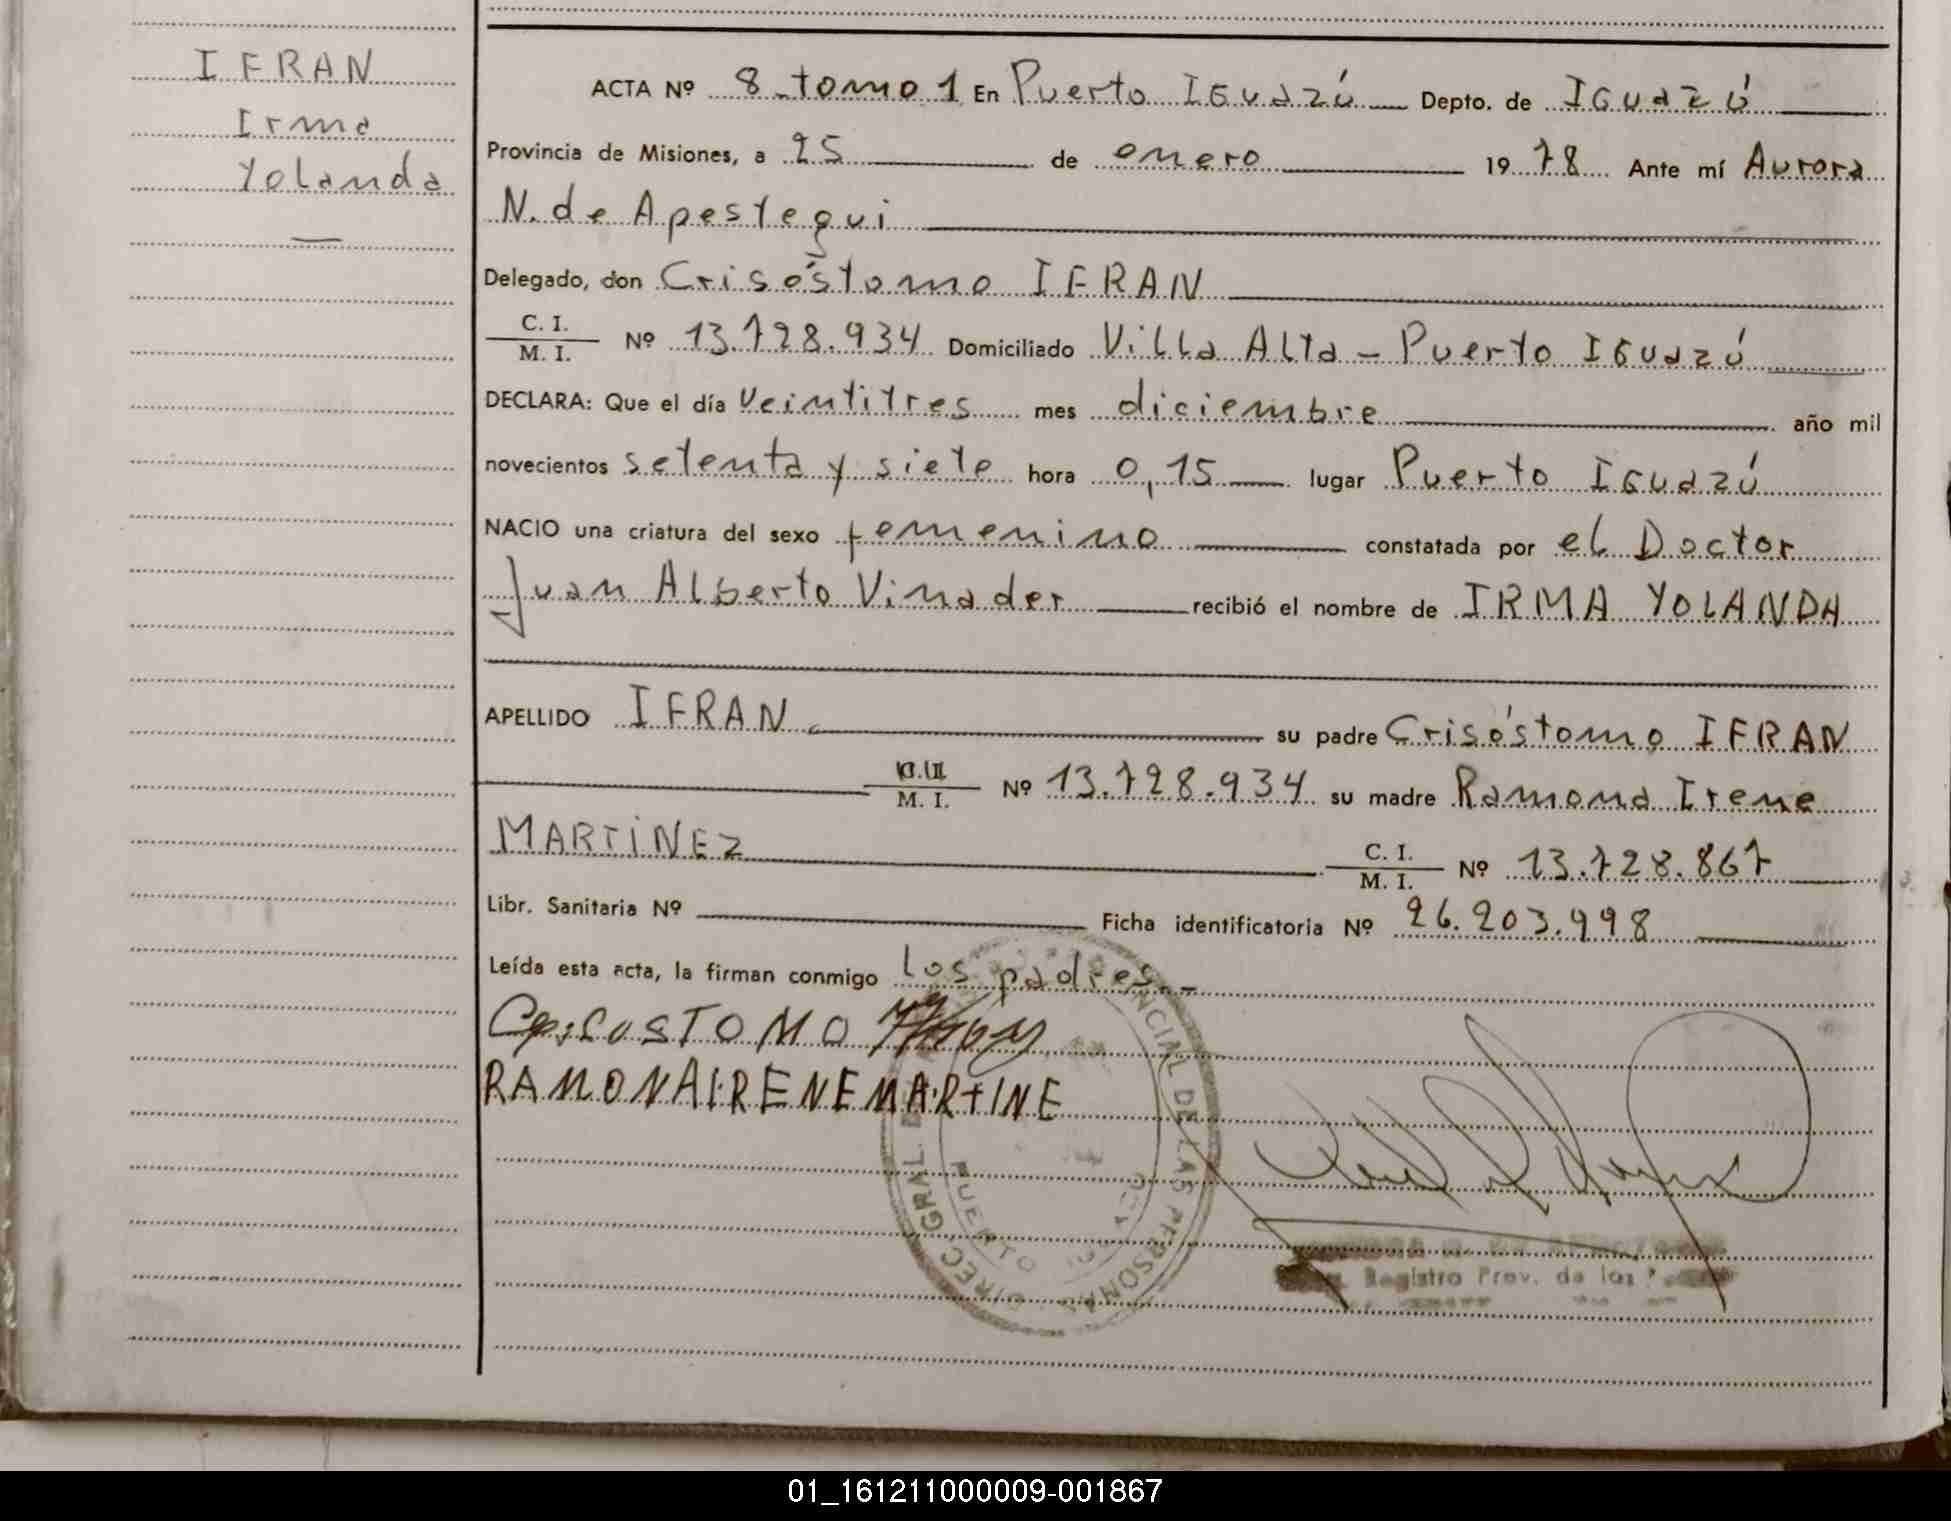 IFRAN
Irma
Yolanda
ACTA Nº 8 - tomo 1 En Puerto IGuazú Depto. de IGuazú
Provincia de Misiones, a 25 de enero 1978 Ante mí Aurora
N. de Apestegui
Delegado, don Crisóstomo IFRAN
C. I.
M. I. Nº 13.728.934 Domiciliado Villa Alta - Puerto IGuazú
DECLARA: Que el día veintitres mes diciembre año mil
novecientos setenta y siete hora 0,15 lugar Puerto IGuazú
NACIO una criatura del sexo femenino constatada por el Doctor
Juan Alberto Vinader recibió el nombre de IRMA YOLANDA
APELLIDO IFRAN su padre Crisóstomo IFRAN
M. I. Nº 13.728.934 su madre Ramona Irene
MARTÍNEZ C. I.
M. I. Nº 13.728.867
Libr. Sanitaria Nº Ficha identificatoria Nº 26.203.998
Leída esta acta, la firman conmigo los padres.-
CRiSOSTOMO
RAMONA IRENE MARTINE
DIREC. GRAL. PROVINCIAL DE LAS PERSONAS
PUERTO IGUAZU
Registro Prov. de las
01_161211000009-001867